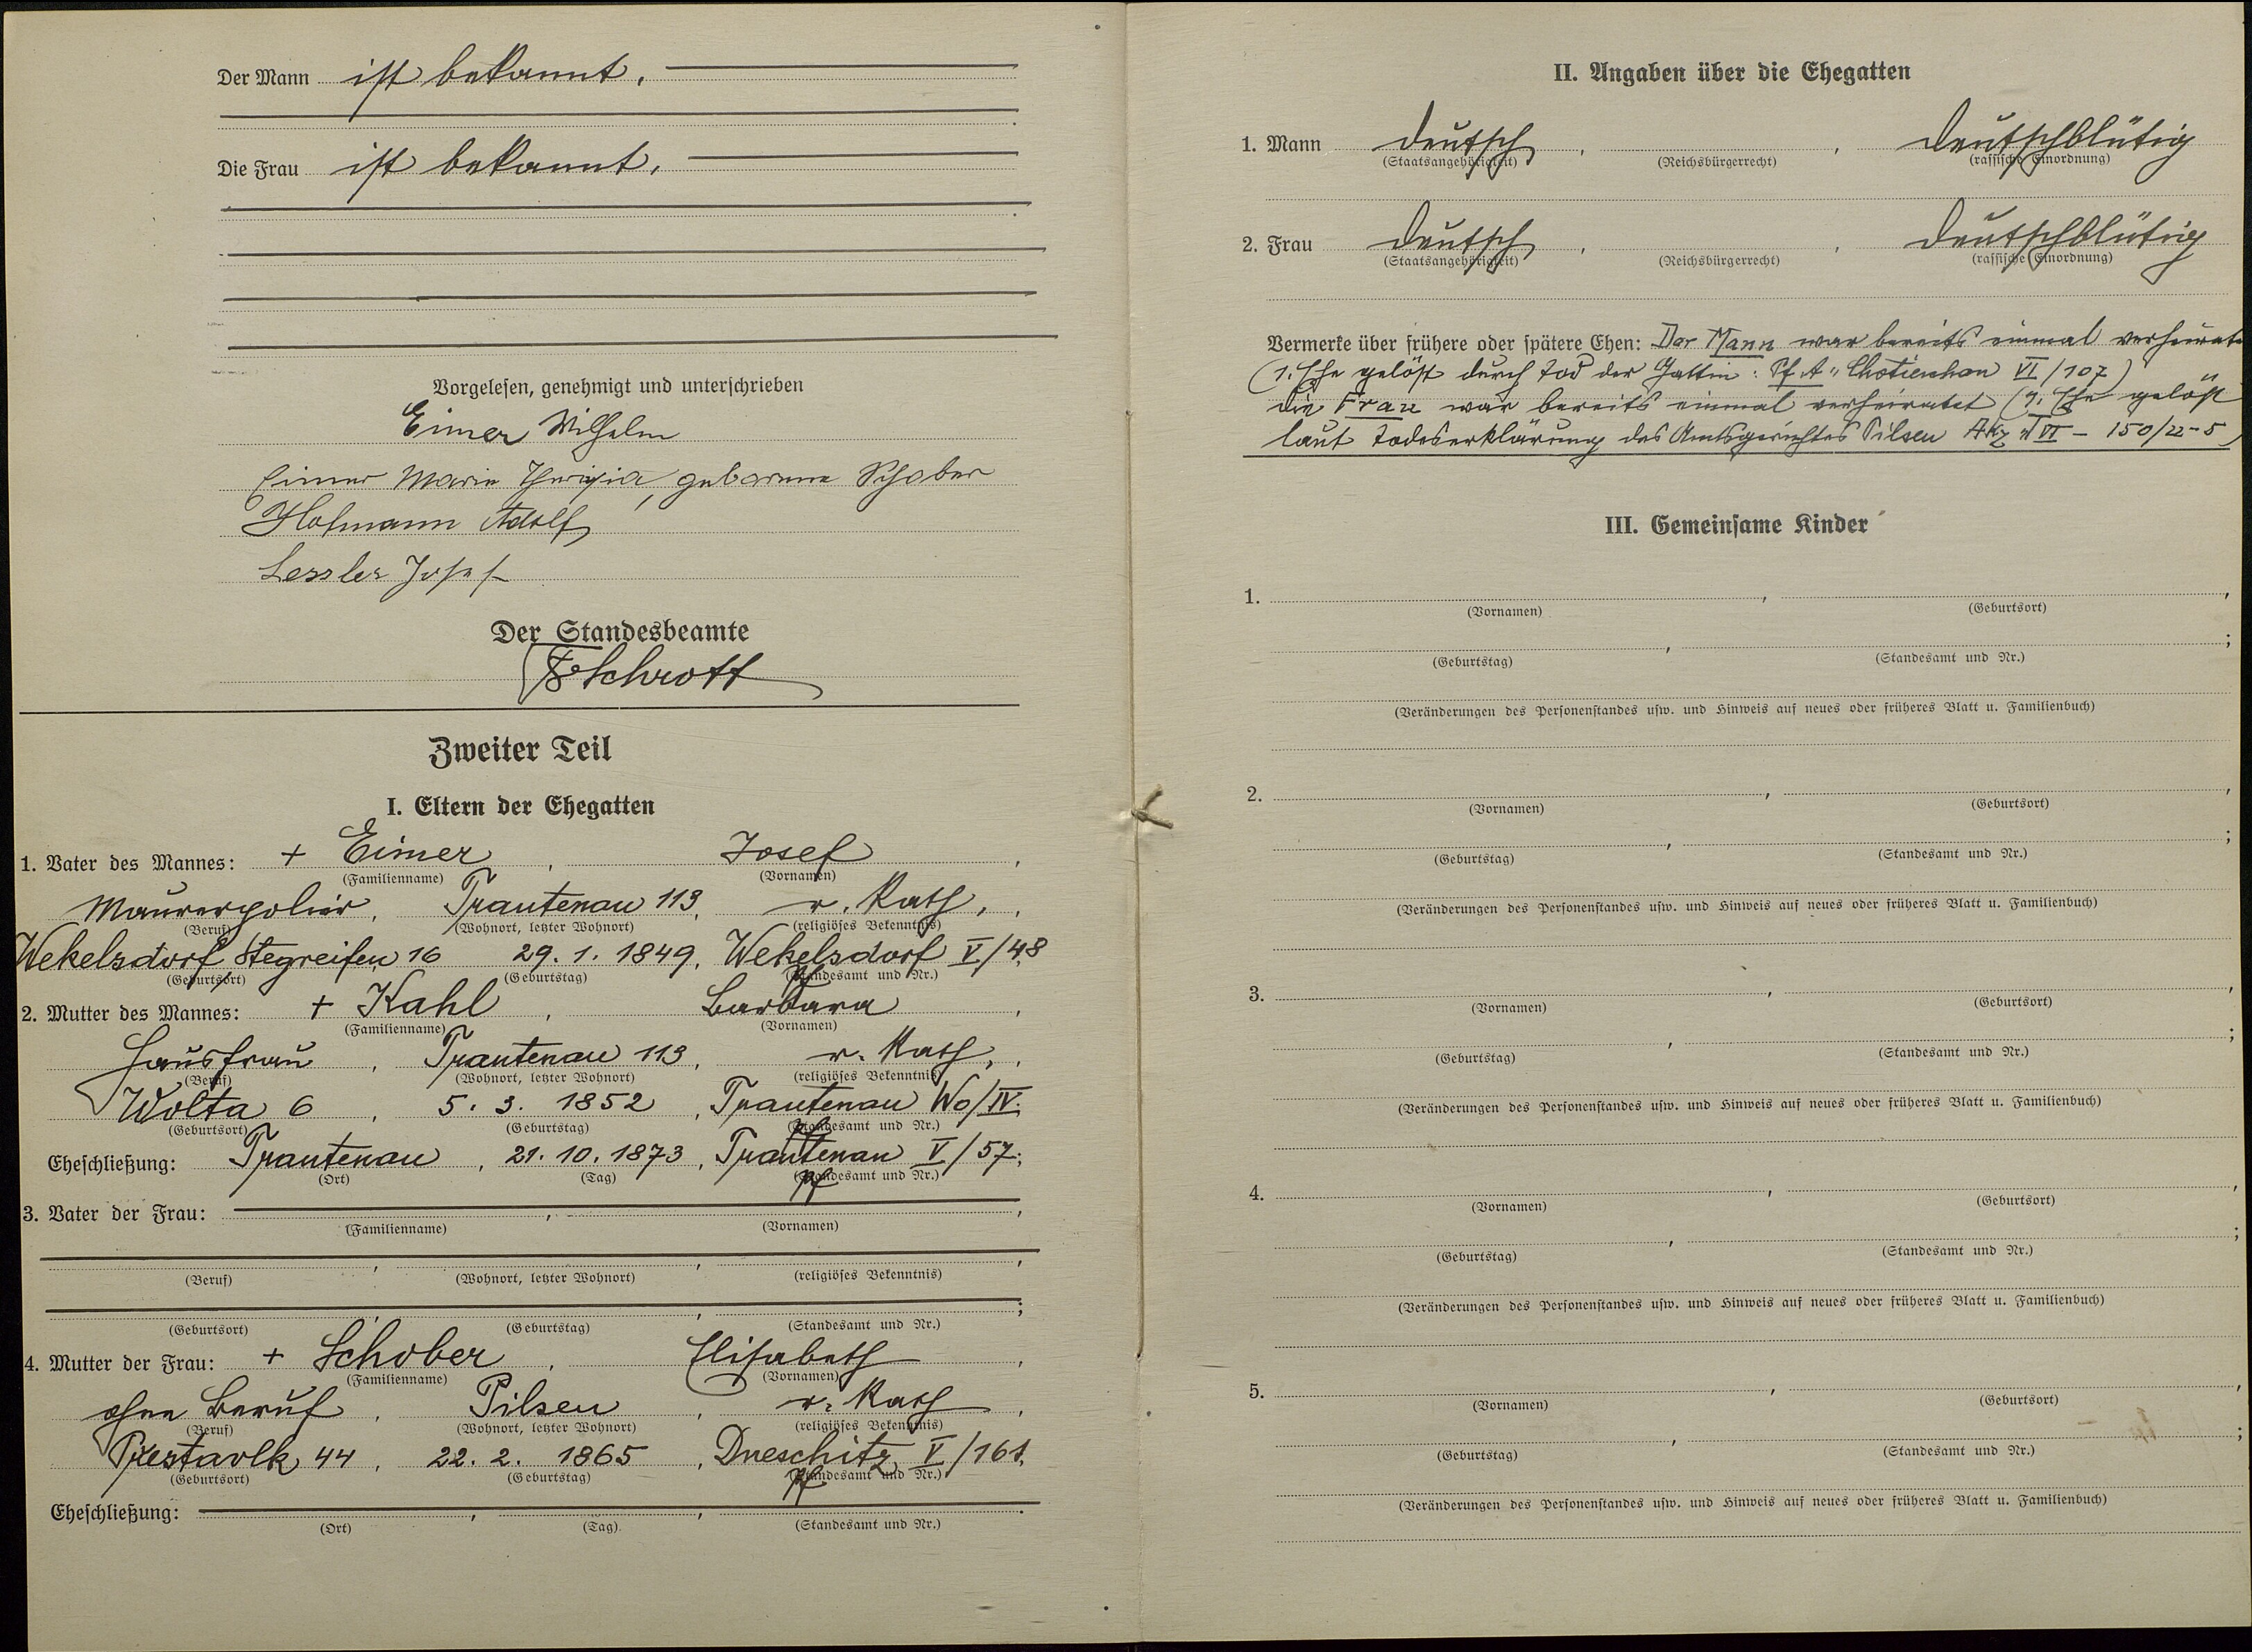 Der Mann ist bekannt.
Die Frau ist bekannt.
Vorgelesen, genehmigt und unterschrieben
Eimer Wilhelm
Eimer Marie Theresia, geborene Schober
Hofmann Adolf
Lessler Josef
Der Standesbeamte
Schrott
Zweiter Teil
I. Eltern der Ehegatten
1. Vater des Mannes: + Eimer, Josef,
(Familienname) (Vornamen)
Maurerpolier, Trautenau 113, r. Kath,
(Beruf) (Wohnort, letzter Wohnort) (religiöses Bekenntnis)
Wekelsdorf Stegreifen 16 29. 1. 1849, Wekelsdorf V/48
(Geburtsort) (Geburtstag) (Standesamt und Nr.)
2. Mutter des Mannes: + Kahl, Barbara,
(Familienname) (Vornamen)
Hausfrau, Trautenau 113, r. Kath,
(Beruf) (Wohnort, letzter Wohnort) (religiöses Bekenntnis)
Wolta 6, 5. 3. 1852, Trautenau Wo/IV.
(Geburtsort) (Geburtstag) (Standesamt und Nr.)
Eheschließung: Trautenau, 21. 10. 1873, Trautenau V/57;
(Ort) (Tag) (Standesamt und Nr.)
3. Vater der Frau:
(Familienname) (Vornamen)
(Beruf) (Wohnort, letzter Wohnort) (religiöses Bekenntnis)
(Geburtsort) (Geburtstag) (Standesamt und Nr.)
4. Mutter der Frau: + Schober, Elisabeth,
(Familienname) (Vornamen)
ohne Beruf, Pilsen, r. Kath,
(Beruf) (Wohnort, letzter Wohnort) (religiöses Bekenntnis)
Prestavlk 44, 22. 2. 1865, Dneschitz V/161.
(Geburtsort) (Geburtstag) (Standesamt und Nr.)
Eheschließung:
(Ort) (Tag) (Standesamt und Nr.)
II. Angaben über die Ehegatten
1. Mann deutsch, deutschblütig
(Staatsangehörigkeit) (Reichsbürgerrecht) (rassische Einordnung)
2. Frau deutsch, deutschblütig
(Staatsangehörigkeit) (Reichsbürgerrecht) (rassische Einordnung)
Vermerke über frühere oder spätere Ehen: Der Mann war bereits einmal verheiratet
(1. Ehe gelöst durch Tod der Gattin: Pf. A. VI/107)
die Frau war bereits einmal verheiratet (1. Ehe gelöst
laut Todeserklärung des Amtsgerichtes Pilsen VI - 150/22-5)
III. Gemeinsame Kinder
1.
(Vornamen) (Geburtsort)
(Geburtstag) (Standesamt und Nr.)
(Veränderungen des Personenstandes usw. und Hinweis auf neues oder früheres Blatt u. Familienbuch)
2.
(Vornamen) (Geburtsort)
(Geburtstag) (Standesamt und Nr.)
(Veränderungen des Personenstandes usw. und Hinweis auf neues oder früheres Blatt u. Familienbuch)
3.
(Vornamen) (Geburtsort)
(Geburtstag) (Standesamt und Nr.)
(Veränderungen des Personenstandes usw. und Hinweis auf neues oder früheres Blatt u. Familienbuch)
4.
(Vornamen) (Geburtsort)
(Geburtstag) (Standesamt und Nr.)
(Veränderungen des Personenstandes usw. und Hinweis auf neues oder früheres Blatt u. Familienbuch)
5.
(Vornamen) (Geburtsort)
(Geburtstag) (Standesamt und Nr.)
(Veränderungen des Personenstandes usw. und Hinweis auf neues oder früheres Blatt u. Familienbuch)